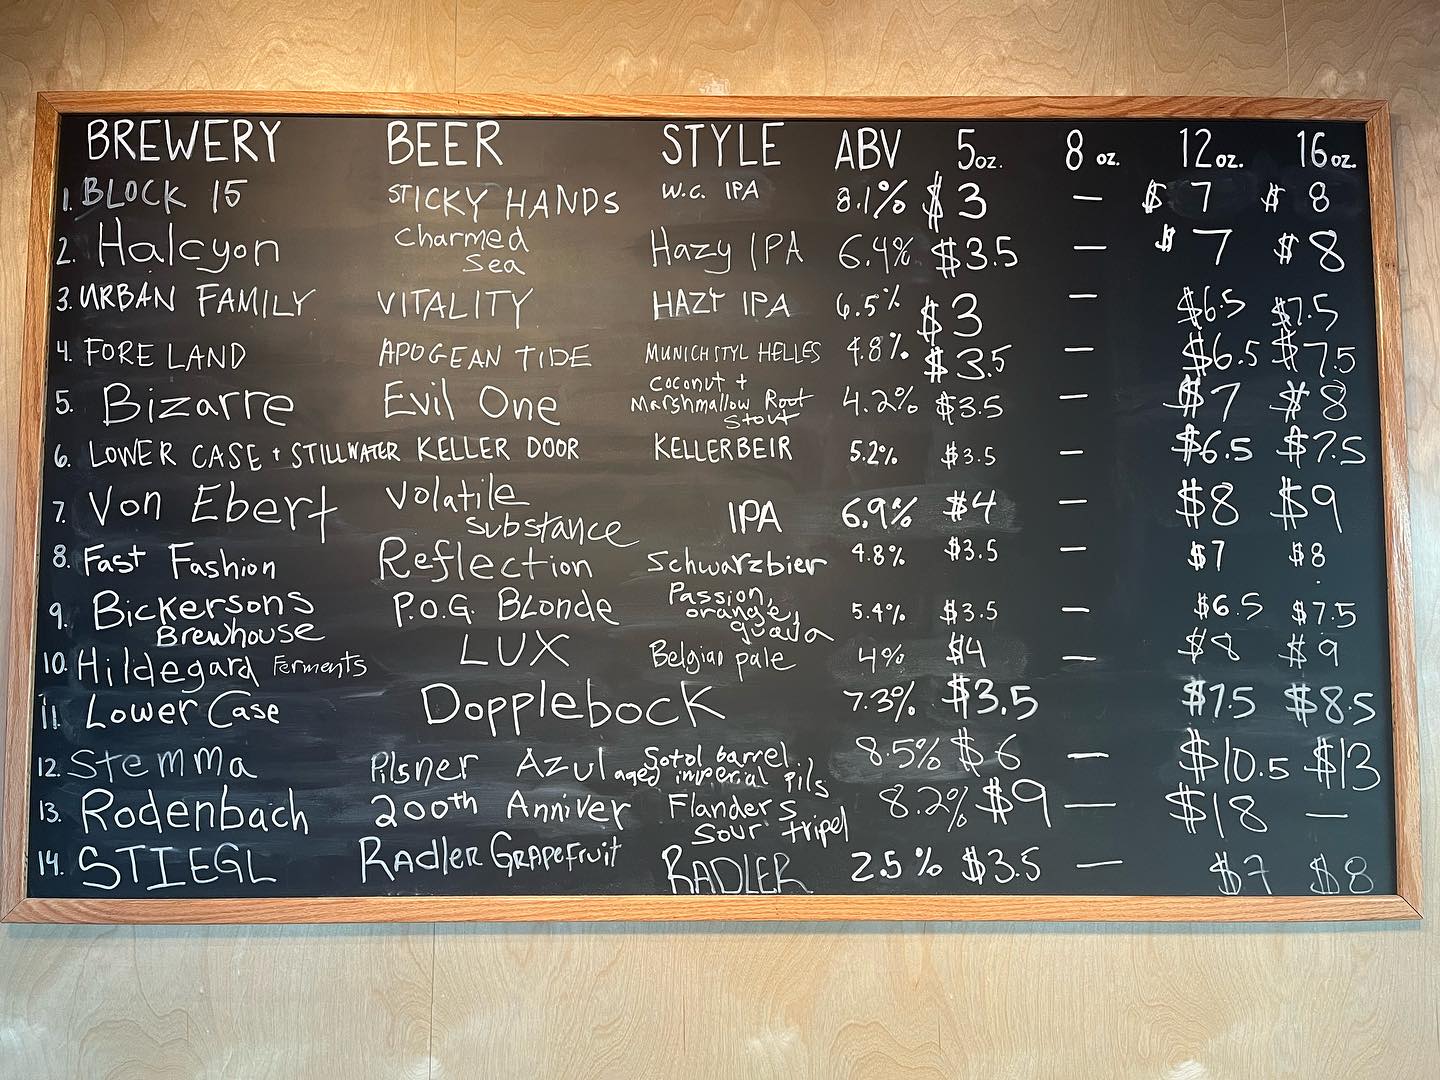 BREWERY BEER STYLE ABV 5oz. 8 oz. 12oz. 16oz.
1. BLOCK 15 STICKY HANDS W.C. IPA 8.1% $3 — $7 $8
2. Halcyon Charmed Sea Hazy IPA 6.4% $3.5 — $7 $8
3. URBAN FAMILY VITALITY HAZY IPA 6.5% $3 — $6.5 $7.5
4. FORE LAND APOGEAN TIDE MUNICH STYL HELLES 4.8% $3.5 — $6.5 $7.5
5. Bizarre Evil One Coconut + Marshmallow Root Stout 4.2% $3.5 — $7 $8
6. LOWER CASE + STILLWATER KELLER DOOR KELLERBEIR 5.2% $3.5 — $6.5 $7.5
7. Von Ebert Volatile Substance IPA 6.9% $4 — $8 $9
8. Fast Fashion Reflection Schwarzbier 4.8% $3.5 — $7 $8
9. Bickersons Brewhouse P.O.G. Blonde Passion, orange, guava 5.4% $3.5 — $6.5 $7.5
10. Hildegard Ferments LUX Belgian pale 4% $4 — $8 $9
11. Lower Case Dopplebock 7.3% $3.5 $7.5 $8.5
12. Stemma Pilsner Azul Sotol barrel aged imperial Pils 8.5% $6 — $10.5 $13
13. Rodenbach 200th Anniver Flanders Sour tripel 8.2% $9 — $18 —
14. STIEGL Radler Grapefruit RADLER 2.5% $3.5 — $7 $8